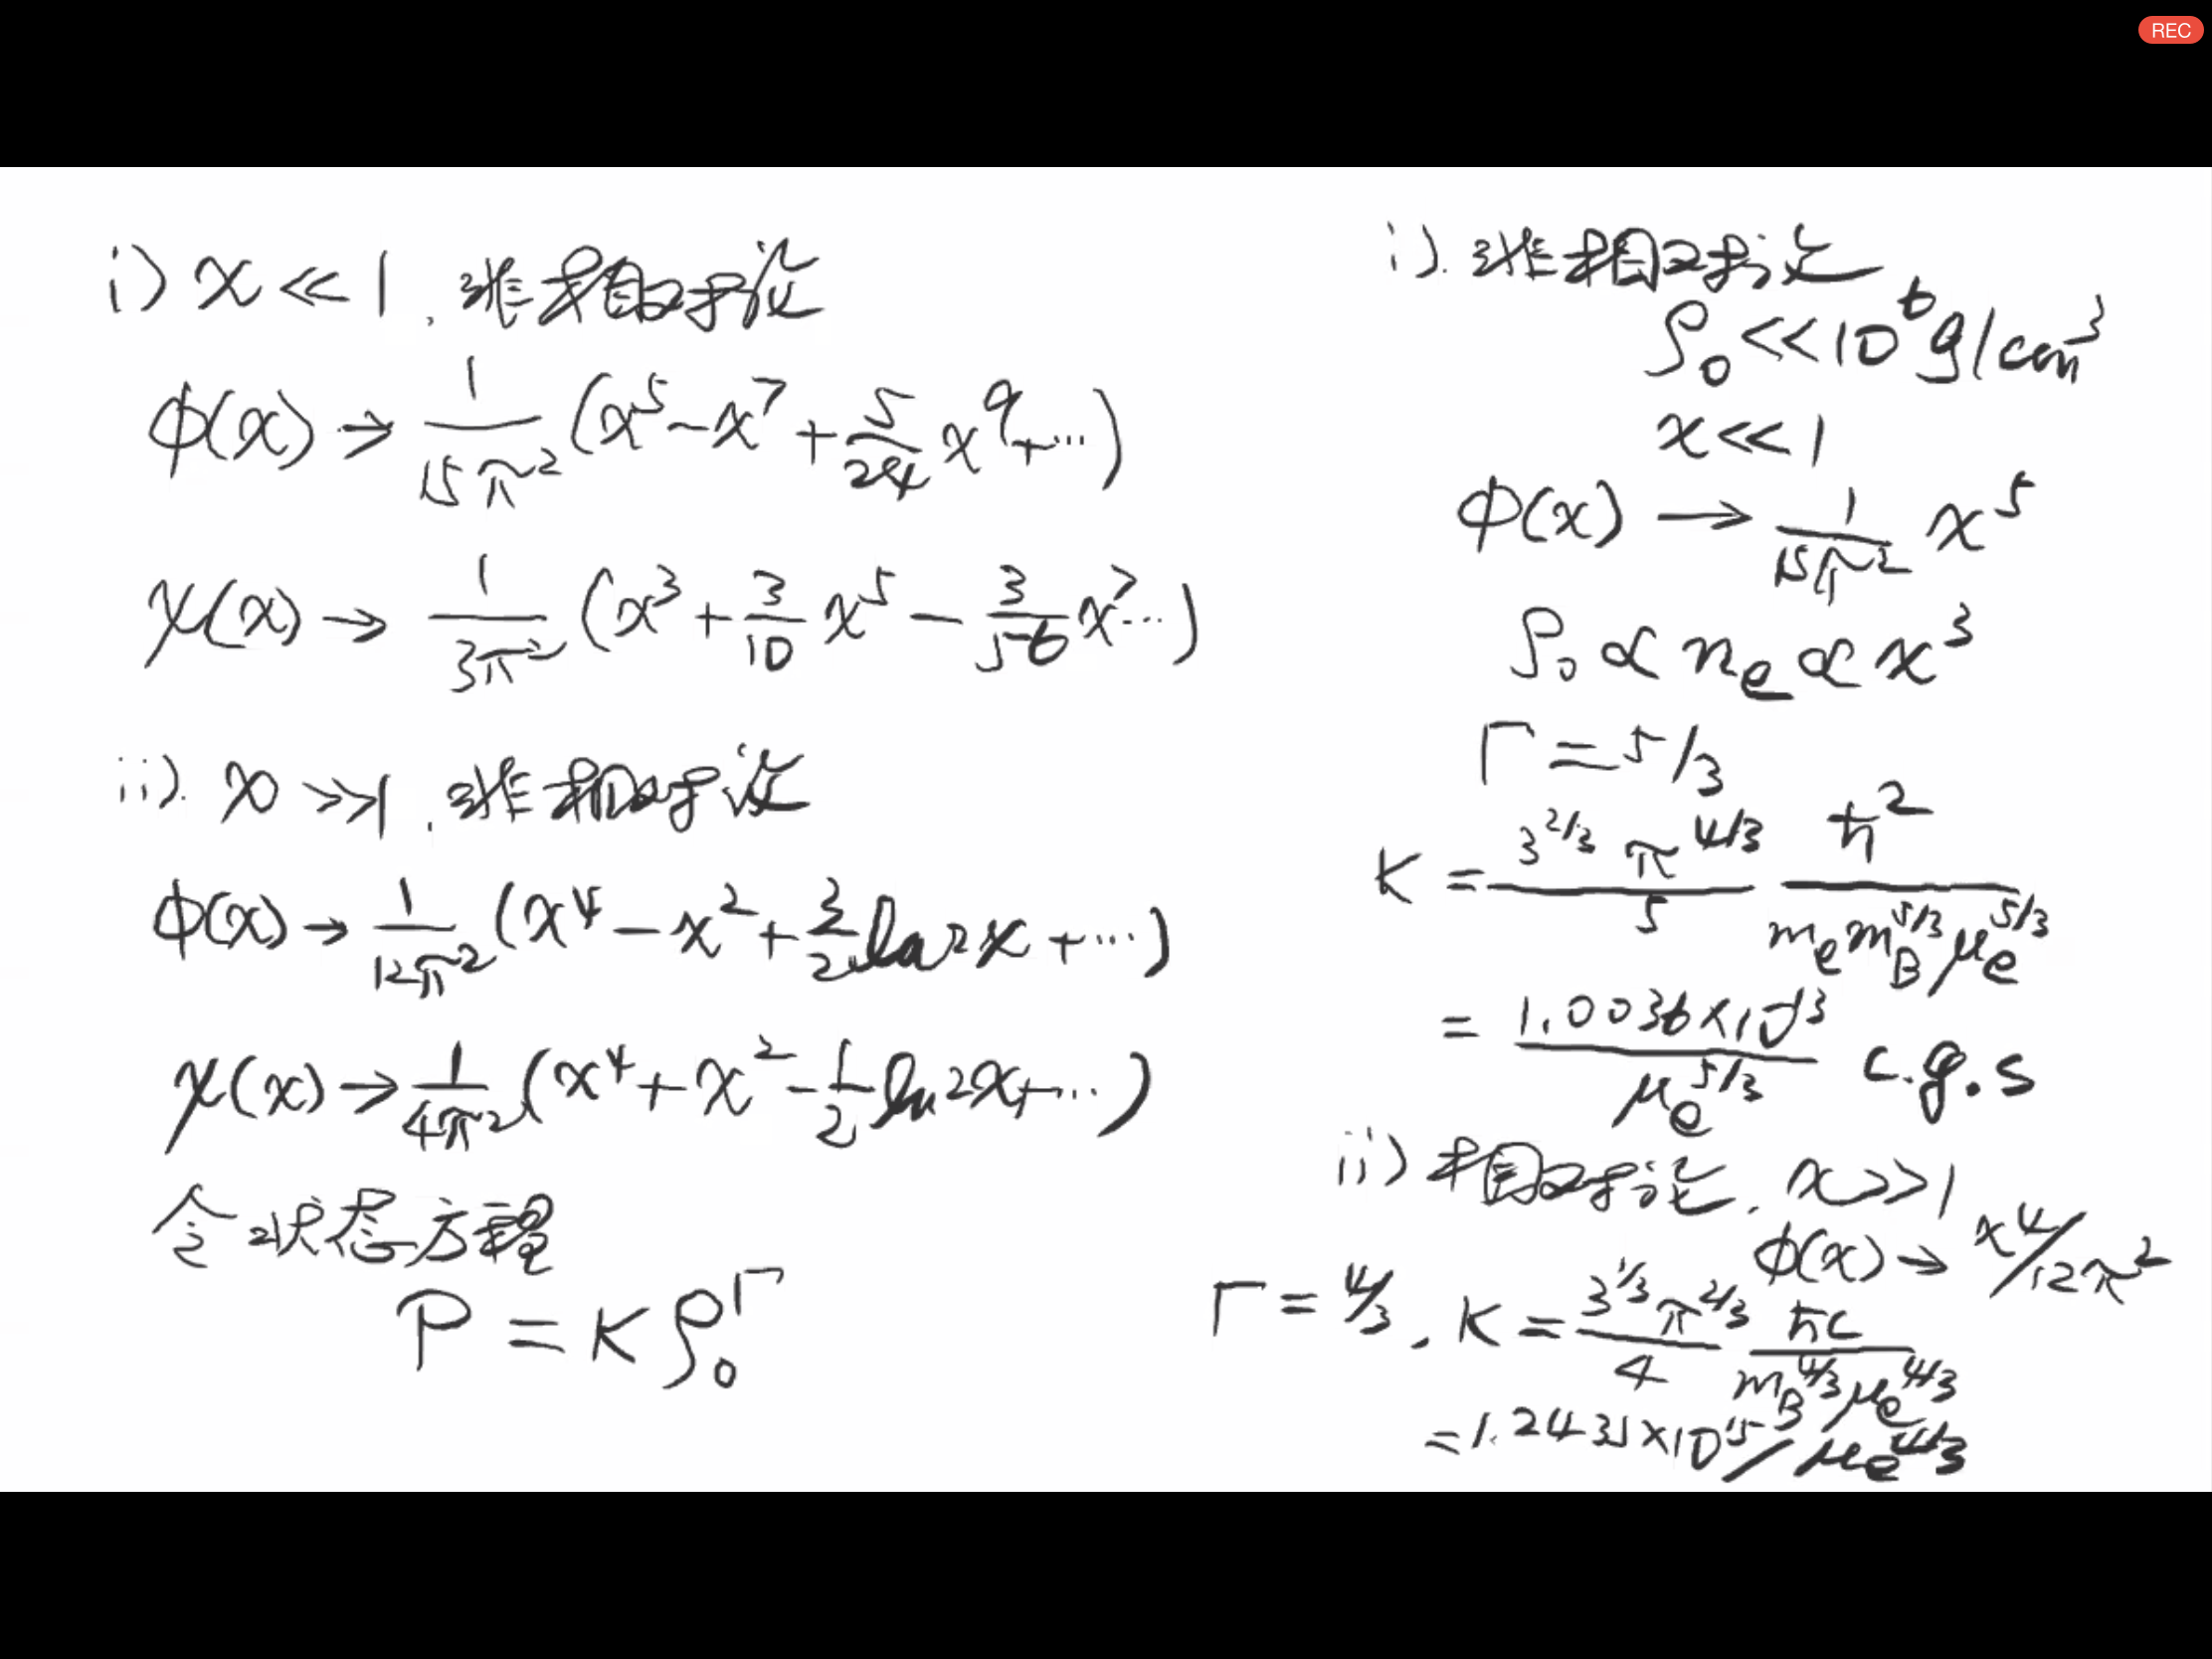 REC
i) x ≪ 1, 非相对论
φ(x) → 1/(15π²) (x⁵ − x⁷ + 5/24 x⁹ + ⋯)
χ(x) → 1/(3π²) (x³ + 3/10 x⁵ − 3/56 x⁷ ⋯)
ii). x ≫ 1, 非相对论
φ(x) → 1/(12π²) (x⁴ − x² + 3/2 ln 2x + ⋯)
χ(x) → 1/(4π²) (x⁴ + x² − 1/2 ln 2x + ⋯)
令状态方程
P = Kρ₀^Γ
i). 非相对论
ρ₀ ≪ 10⁶ g/cm³
x ≪ 1
φ(x) → 1/(15π²) x⁵
ρ₀ ∝ nₑ ∝ x³
Γ = 5/3
K = 3^(2/3) π^(4/3) / 5 · ℏ² / (mₑ m_B^(5/3) μₑ^(5/3))
= 1.0036×10¹³ / μₑ^(5/3) c.g.s
ii) 相对论, x ≫ 1
φ(x) → x⁴/12π²
Γ = 4/3, K = 3^(1/3) π^(2/3) / 4 · ℏc / (m_B^(4/3) μₑ^(4/3))
= 1.2431×10¹⁵ / μₑ^(4/3)